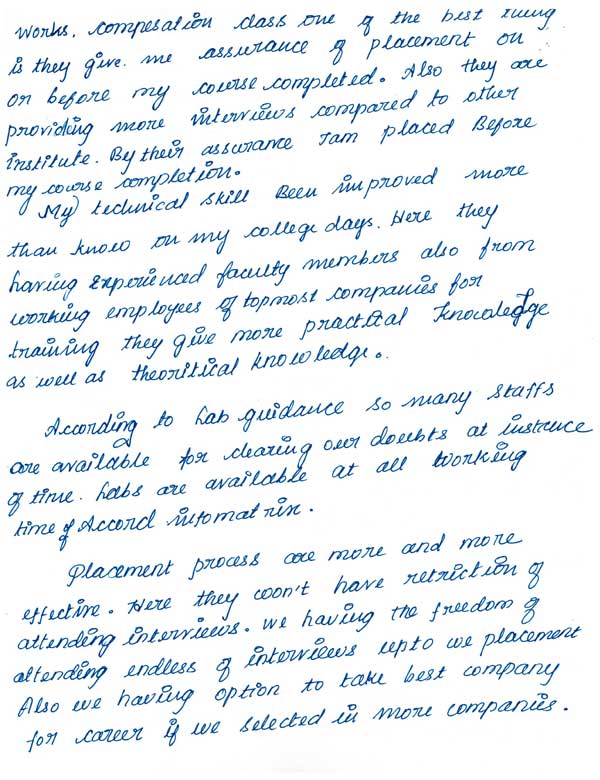 works. compesation class one of the best thing
is they give. me assurance of placement on
or before my course completed. Also they are
providing more interviews compared to other
institute. By their assurance Iam placed Before
my course completion.
My technical skill Been improved more
than know on my college days. Here they
having Experienced faculty members also from
working employees of topmost companies for
training they give more practical knowledge
as well as theoritical knowledge.
According to Lab guidance so many staffs
are available for clearing our doubts at instance
of time. Labs are available at all working
time of Accord infomatrix.
Placement process are more and more
effective. Here they won't have retriction of
attending interviews. We having the freedom of
attending endless of interviews upto we placement
Also we having option to take best company
for career if we selected in more companies.